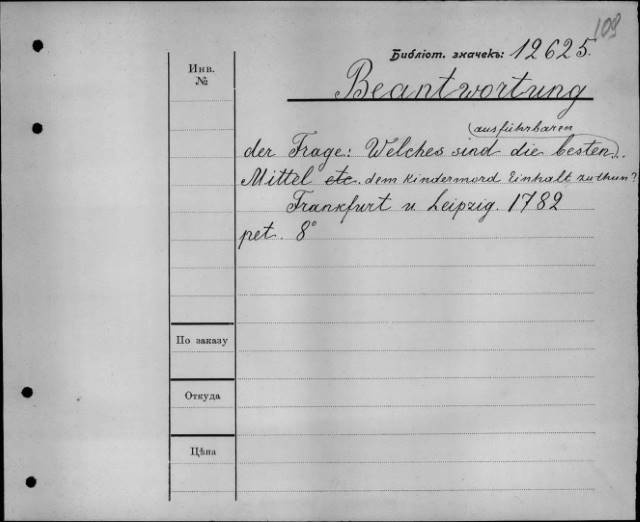 109
Библіот. значекъ: 12625.
Инв.
№
Beantwortung
ausführbaren
der Frage: Welches sind die besten..
Mittel etc. dem Kindermord Einhalt zu thun?
Frankfurt u. Leipzig. 1782
pet. 8°
По заказу
Откуда
Цѣна